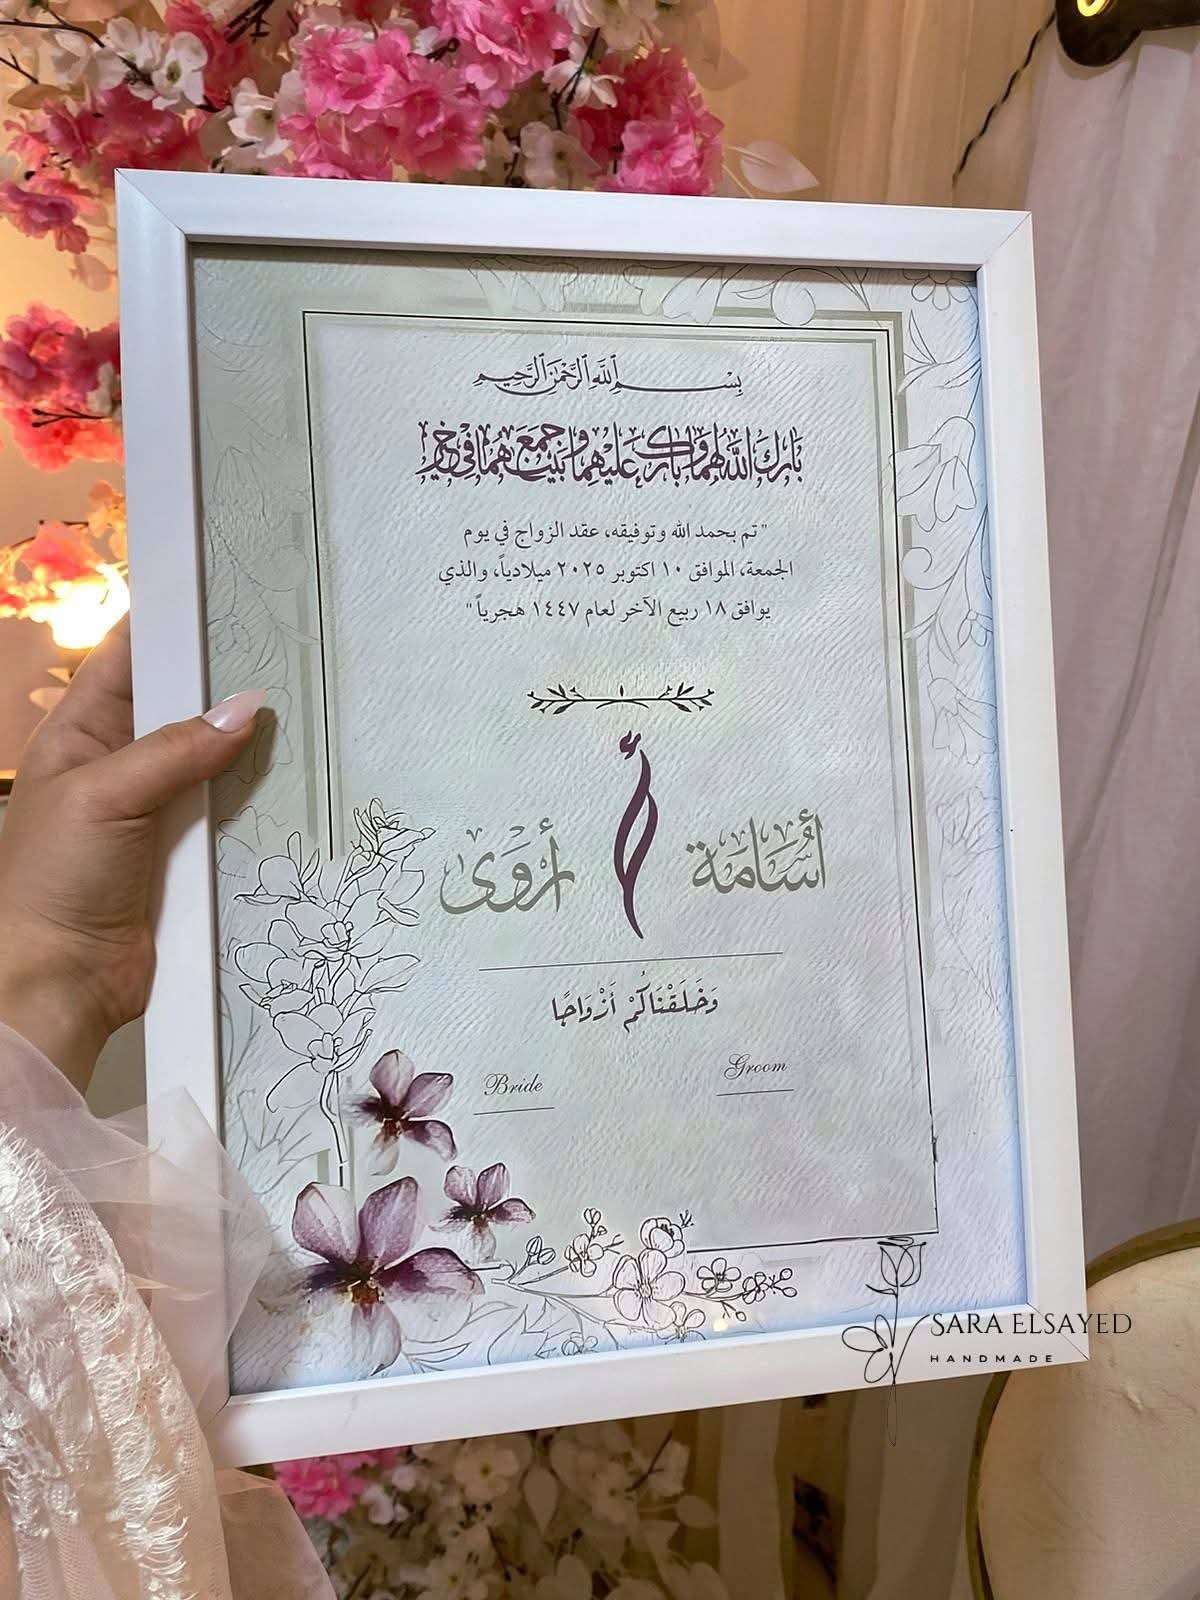 بِسْمِ ٱللَّهِ ٱلرَّحْمَٰنِ ٱلرَّحِيمِ
بَارَكَ اللَّهُ لَهُمَا وَبَارَكَ عَلَيْهِمَا وَجَمَعَ بَيْنَهُمَا فِي خَيْرٍ
" تم بحمد الله وتوفيقه، عقد الزواج في يوم
الجمعة، الموافق ١٠ اكتوبر ٢٠٢٥ ميلادياً، والذي
يوافق ١٨ ربيع الآخر لعام ١٤٤٧ هجرياً "
أ
أُسَامَة أَرْوَى
وَخَلَقْنَاكُمْ أَزْوَاجًا
Bride Groom
SARA ELSAYED
HANDMADE